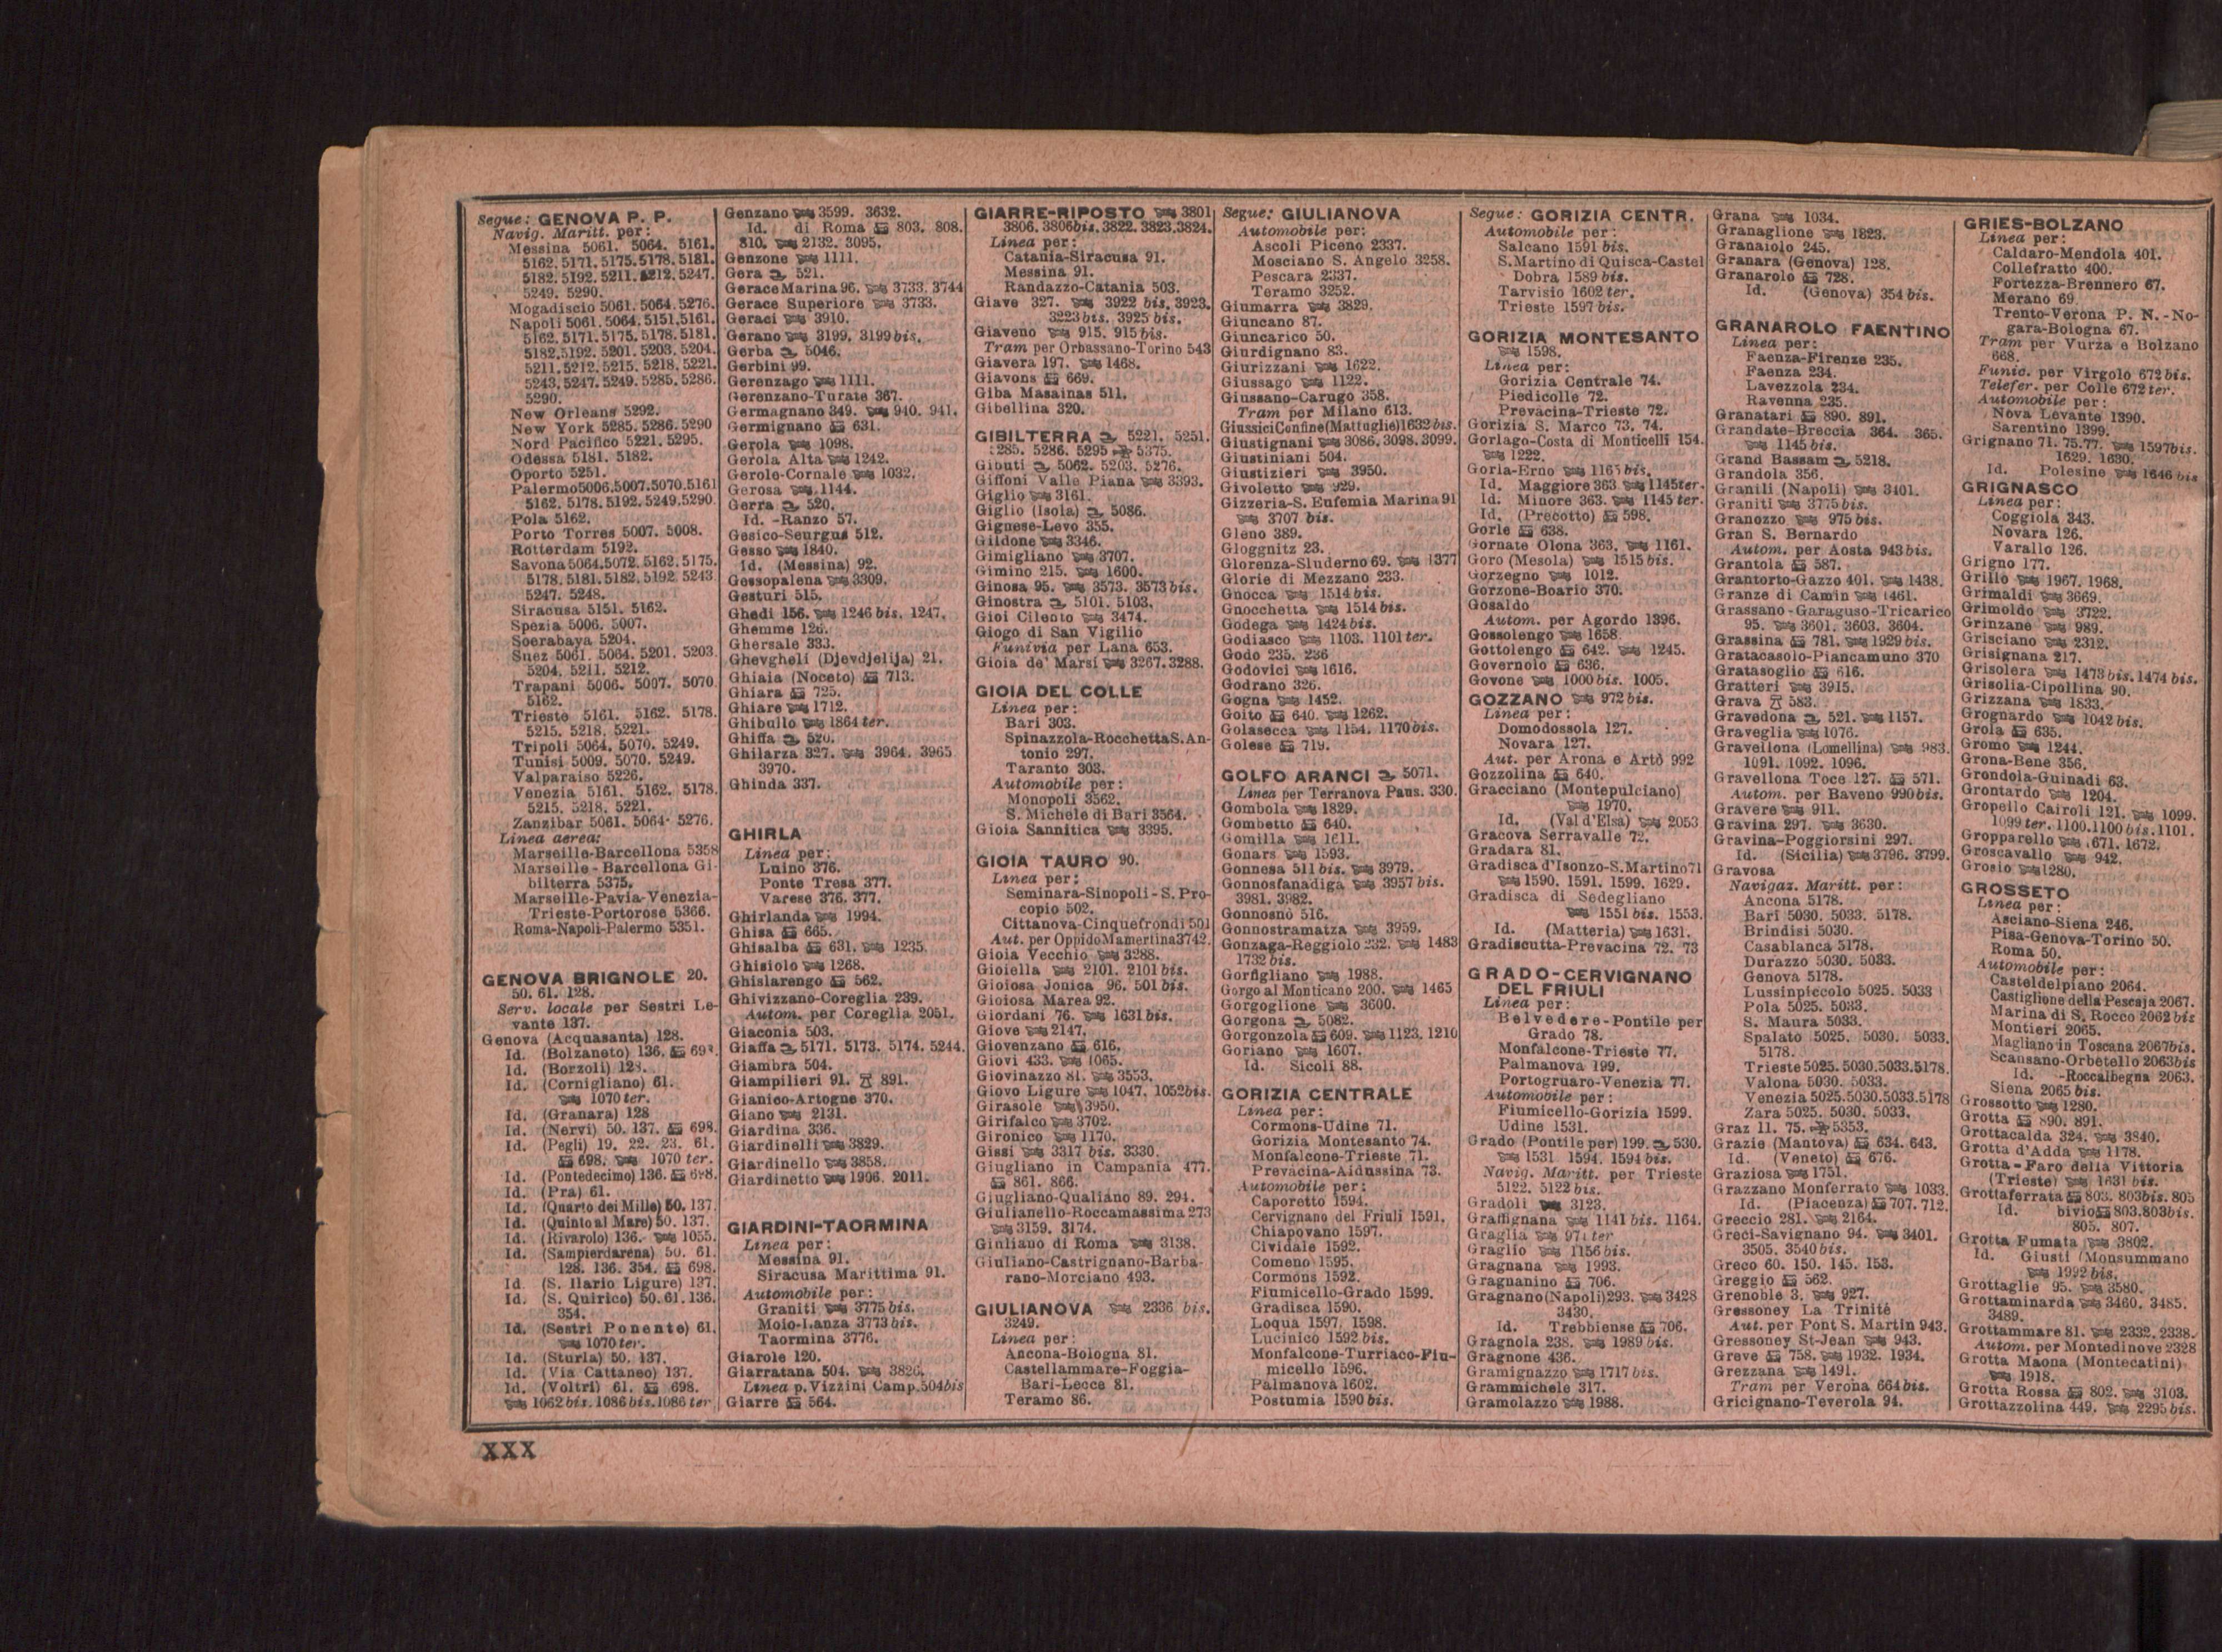 Segue: GENOVA P. P.
Navig. Maritt. per:
Messina 5061. 5064. 5161.
5162. 5171. 5175. 5178. 5181.
5182. 5192. 5211. 5212. 5247.
5249. 5290.
Mogadiscio 5061. 5064. 5276.
Napoli 5061. 5064. 5151. 5161.
5162. 5171. 5175. 5178. 5181.
5182. 5192. 5201. 5203. 5204.
5211. 5212. 5215. 5218. 5221.
5243. 5247. 5249. 5285. 5286.
5290.
New Orleans 5292.
New York 5285. 5286. 5290
Nord Pacifico 5221. 5295.
Odessa 5181. 5182.
Oporto 5251.
Palermo 5006. 5007. 5070. 5161
5162. 5178. 5192. 5249. 5290.
Pola 5162.
Porto Torres 5007. 5008.
Rotterdam 5192.
Savona 5064. 5072. 5162. 5175.
5178. 5181. 5182. 5192. 5243
5247. 5248.
Siracusa 5151. 5162.
Spezia 5006. 5007.
Soerabaya 5204.
Suez 5061. 5064. 5201. 5203
5204. 5211. 5212.
Trapani 5006. 5007. 5070
5162.
Trieste 5161. 5162. 5178.
5215. 5218. 5221.
Tripoli 5064. 5070. 5249.
Tunisi 5009. 5070. 5249.
Valparaiso 5226.
Venezia 5161. 5162. 5178
5215. 5218. 5221.
Zanzibar 5061. 5064. 5276.
Linea aerea:
Marseille-Barcellona 5358
Marseille-Barcellona Gi-
bilterra 5375.
Marseille-Pavia-Venezia-
Trieste-Portorose 5366.
Roma-Napoli-Palermo 5351.
GENOVA BRIGNOLE 20.
50. 61. 128.
Serv. locale per Sestri Le-
vante 137.
Genova (Acquasanta) 128.
Id. (Bolzaneto) 136.
Id. (Borzoli) 128.
Id. (Cornigliano) 61.
1070 ter.
Id. (Granara) 128
Id. (Nervi) 50. 137. 698.
Id. (Pegli) 19. 22. 23. 61.
698. 1070 ter.
Id. (Pontedecimo) 136. 698.
Id. (Pra) 61.
Id. (Quarto dei Mille) 50. 137.
Id. (Quinto al Mare) 50. 137.
Id. (Rivarolo) 136. 1055.
Id. (Sampierdarena) 50. 61.
128. 136. 354. 698.
Id. (S. Ilario Ligure) 137.
Id. (S. Quirico) 50. 61. 136.
354.
Id. (Sestri Ponente) 61.
1070 ter.
Id. (Sturla) 50. 137.
Id. (Via Cattaneo) 137.
Id. (Voltri) 61. 698.
1062 bis. 1086 bis. 1086 ter
Genzano 3599. 3632.
Id. di Roma 803. 808.
810. 2132. 3095.
Genzone 1111.
Gera 521.
Gerace Marina 96. 3733. 3744
Gerace Superiore 3733.
Geraci 3910.
Gerano 3199. 3199 bis.
Gerba 5046.
Gerbini 99.
Gerenzago 1111.
Gerenzano-Turate 367.
Germagnano 349. 940. 941.
Germignano 631.
Gerola 1098.
Gerola Alta 1242.
Gerole-Cornale 1032.
Gerosa 1144.
Gerra 520.
Id. -Ranzo 57.
Gesico-Seurgus 512.
Gesso 1840.
Id. (Messina) 92.
Gessopalena 3309.
Gesturi 515.
Ghedi 156. 1246 bis. 1247.
Ghemme 126.
Ghersale 333.
Ghevgheli (Djevdjelija) 21.
Ghiaia (Noceto) 713.
Ghiara 725.
Ghiare 1712.
Ghibullo 1864 ter.
Ghiffa 520.
Ghilarza 327. 3964. 3965
3970.
Ghinda 337.
GHIRLA
Linea per:
Luino 376.
Ponte Tresa 377.
Varese 376. 377.
Ghirlanda 1994.
Ghisa 665.
Ghisalba 631. 1235.
Ghisiolo 1268.
Ghislarengo 562.
Ghivizzano-Coreglia 239.
Autom. per Coreglia 2051.
Giaconia 503.
Giaffa 5171. 5173. 5174. 5244.
Giambra 504.
Giampilieri 91. 891.
Gianico-Artogne 370.
Giano 2131.
Giardina 336.
Giardinelli 3829.
Giardinello 3858.
Giardinetto 1906. 2011.
GIARDINI-TAORMINA
Linea per:
Messina 91.
Siracusa Marittima 91.
Automobile per:
Graniti 3775 bis.
Moio-Lanza 3773 bis.
Taormina 3776.
Giarole 120.
Giarratana 504. 3826.
Linea p. Vizzini Camp. 504 bis
Giarre 564.
GIARRE-RIPOSTO 3801
3806. 3806 bis. 3822. 3823. 3824.
Linea per:
Catania-Siracusa 91.
Messina 91.
Randazzo-Catania 503.
Giave 327. 3922 bis. 3923.
3223 bis. 3925 bis.
Giaveno 915. 915 bis.
Tram per Orbassano-Torino 543
Giavera 197. 1468.
Giavons 669.
Giba Masainas 511.
Gibellina 320.
GIBILTERRA 5221. 5251.
5285. 5286. 5295 5375.
Gibuti 5062. 5203. 5276.
Giffoni Valle Piana 3393.
Giglio 3161.
Giglio (Isola) 5086.
Gignese-Levo 355.
Gildone 3346.
Gimigliano 3707.
Gimino 215. 1600.
Ginosa 95. 3573. 3573 bis.
Ginostra 5101. 5103.
Gioi Cilento 3474.
Giogo di San Vigilio
Funivia per Lana 653.
Gioia de' Marsi 3267. 3288.
GIOIA DEL COLLE
Linea per:
Bari 303.
Spinazzola-Rocchetta S. An-
tonio 297.
Taranto 303.
Automobile per:
Monopoli 3562.
S. Michele di Bari 3564.
Gioia Sannitica 3395.
GIOIA TAURO 90.
Linea per:
Seminara-Sinopoli-S. Pro-
copio 502.
Cittanova-Cinquefrondi 501
Aut. per Oppido Mamertina 3742.
Gioia Vecchio 3288.
Gioiella 2101. 2101 bis.
Gioiosa Jonica 96. 501 bis.
Gioiosa Marea 92.
Giordani 76. 1631 bis.
Giove 2147.
Giovenzano 616.
Giovi 433. 1065.
Giovinazzo 81. 3553.
Giovo Ligure 1047. 1052 bis.
Girasole 3950.
Girifalco 3702.
Gironico 1170.
Gissi 3317 bis. 3330.
Giugliano in Campania 477.
861. 866.
Giugliano-Qualiano 89. 294.
Giulianello-Roccamassima 273
3159. 3174.
Giuliano di Roma 3138.
Giuliano-Castrignano-Barba-
rano-Morciano 493.
GIULIANOVA 2336 bis.
3249.
Linea per:
Ancona-Bologna 81.
Castellammare-Foggia-
Bari-Lecce 81.
Teramo 86.
Segue: GIULIANOVA
Automobile per:
Ascoli Piceno 2337.
Mosciano S. Angelo 3258.
Pescara 2337.
Teramo 3252.
Giumarra 3829.
Giuncano 87.
Giuncarico 50.
Giurdignano 83.
Giurizzani 1622.
Giussago 1122.
Giussano-Carugo 358.
Tram per Milano 613.
Giussici Confine (Mattuglie) 1632 bis.
Giustignani 3086. 3098. 3099.
Giustiniani 504.
Giustizieri 3950.
Givoletto 929.
Gizzeria-S. Eufemia Marina 91
3707 bis.
Gleno 389.
Gloggnitz 23.
Glorenza-Sluderno 69. 1377
Glorie di Mezzano 233.
Gnocca 1514 bis.
Gnocchetta 1514 bis.
Godega 1424 bis.
Godiasco 1103. 1101 ter.
Godo 235. 236
Godovici 1616.
Godrano 326.
Gogna 1452.
Goito 640. 1262.
Golasecca 1154. 1170 bis.
Golese 719.
GOLFO ARANCI 5071.
Linea per Terranova Paus. 330.
Gombola 1829.
Gombetto 640.
Gomilla 1611.
Gonars 1593.
Gonnesa 511 bis. 3979.
Gonnosfanadiga 3957 bis.
3981. 3982.
Gonnosnò 516.
Gonnostramatza 3959.
Gonzaga-Reggiolo 232. 1483
1732 bis.
Gorfigliano 1988.
Gorgo al Monticano 200. 1465
Gorgoglione 3600.
Gorgona 5082.
Gorgonzola 609. 1123. 1210
Goriano 1607.
Id. Sicoli 88.
GORIZIA CENTRALE
Linea per:
Cormons-Udine 71.
Gorizia Montesanto 74.
Monfalcone-Trieste 71.
Prevacina-Aidussina 73.
Automobile per:
Caporetto 1594.
Cervignano del Friuli 1591.
Chiapovano 1597.
Cividale 1592.
Comeno 1595.
Cormons 1592.
Fiumicello-Grado 1599.
Gradisca 1590.
Loqua 1597. 1598.
Lucinico 1592 bis.
Monfalcone-Turriaco-Fiu-
micello 1596.
Palmanova 1602.
Postumia 1590 bis.
Segue: GORIZIA CENTR.
Automobile per:
Salcano 1591 bis.
S. Martino di Quisca-Castel
Dobra 1589 bis.
Tarvisio 1602 ter.
Trieste 1597 bis.
GORIZIA MONTESANTO
1598.
Linea per:
Gorizia Centrale 74.
Piedicolle 72.
Prevacina-Trieste 72.
Gorizia S. Marco 73. 74.
Gorlago-Costa di Monticelli 154.
1222.
Gorla-Erno 1165 bis.
Id. Maggiore 363. 1145 ter.
Id. Minore 363. 1145 ter.
Id. (Precotto) 598.
Gorle 638.
Gornate Olona 363. 1161.
Goro (Mesola) 1515 bis.
Gorzegno 1012.
Gorzone-Boario 370.
Gosaldo
Autom. per Agordo 1396.
Gossolengo 1658.
Gottolengo 642. 1245.
Governolo 636.
Govone 1000 bis. 1005.
GOZZANO 972 bis.
Linea per:
Domodossola 127.
Novara 127.
Aut. per Arona e Artò 992
Gozzolina 640.
Gracciano (Montepulciano)
1970.
Id. (Val d'Elsa) 2053
Gracova Serravalle 72.
Gradara 81.
Gradisca d'Isonzo-S. Martino 71
1590. 1591. 1599. 1629.
Gradisca di Sedegliano
1551 bis. 1553.
Id. (Matteria) 1631.
Gradiscutta-Prevacina 72. 73
GRADO-CERVIGNANO
DEL FRIULI
Linea per:
Belvedere-Pontile per
Grado 78.
Monfalcone-Trieste 77.
Palmanova 199.
Portogruaro-Venezia 77.
Automobile per:
Fiumicello-Gorizia 1599.
Udine 1531.
Grado (Pontile per) 199. 530.
1531 1594. 1594 bis.
Navig. Maritt. per Trieste
5122. 5122 bis.
Gradoli 3123.
Graffignana 1141 bis. 1164.
Graglia 971 ter
Graglio 1156 bis.
Gragnana 1993.
Gragnanino 706.
Gragnano (Napoli) 293. 3428
3430.
Id. Trebbiense 706.
Gragnola 238. 1989 bis.
Gragnone 436.
Gramignazzo 1717 bis.
Grammichele 317.
Gramolazzo 1988.
Grana 1034.
Granaglione 1823.
Granaiolo 245.
Granara (Genova) 128.
Granarolo 728.
Id. (Genova) 354 bis.
GRANAROLO FAENTINO
Linea per:
Faenza-Firenze 235.
Faenza 234.
Lavezzola 234.
Ravenna 235.
Granatari 890. 891.
Grandate-Breccia 364. 365.
1145 bis.
Grand Bassam 5218.
Grandola 356.
Granili (Napoli) 3401.
Graniti 3775 bis.
Granozzo 975 bis.
Gran S. Bernardo
Autom. per Aosta 943 bis.
Grantola 587.
Grantorto-Gazzo 401. 1438.
Granze di Camin 1461.
Grassano-Garaguso-Tricarico
95. 3601. 3603. 3604.
Grassina 781. 1929 bis.
Gratacasolo-Piancamuno 370
Gratasoglio 616.
Gratteri 3915.
Grava 583.
Gravedona 521. 1157.
Graveglia 1076.
Gravellona (Lomellina) 983.
1091. 1092. 1096.
Gravellona Toce 127. 571.
Autom. per Baveno 990 bis.
Gravere 911.
Gravina 297. 3630.
Gravina-Poggiorsini 297.
Id. (Sicilia) 3796. 3799.
Gravosa
Navigaz. Maritt. per:
Ancona 5178.
Bari 5030. 5033. 5178.
Brindisi 5030.
Casablanca 5178.
Durazzo 5030. 5033.
Genova 5178.
Lussinpiccolo 5025. 5033
Pola 5025. 5033.
S. Maura 5033.
Spalato 5025. 5030. 5033.
5178.
Trieste 5025. 5030. 5033. 5178.
Valona 5030. 5033.
Venezia 5025. 5030. 5033. 5178
Zara 5025. 5030. 5033.
Graz 11. 75. 5353.
Grazie (Mantova) 634. 643.
Id. (Veneto) 676.
Graziosa 1751.
Grazzano Monferrato 1033.
Id. (Piacenza) 707. 712.
Greccio 281. 2164.
Greci-Savignano 94. 3401.
3505. 3540 bis.
Greco 60. 150. 145. 153.
Greggio 562.
Grenoble 3. 927.
Gressoney La Trinité
Aut. per Pont S. Martin 943.
Gressoney St-Jean 943.
Greve 758. 1932. 1934.
Grezzana 1491.
Tram per Verona 664 bis.
Gricignano-Teverola 94.
GRIES-BOLZANO
Linea per:
Caldaro-Mendola 401.
Collefratto 400.
Fortezza-Brennero 67.
Merano 69.
Trento-Verona P. N.-No-
gara-Bologna 67.
Tram per Vurza e Bolzano
668.
Funic. per Virgolo 672 bis.
Telefer. per Colle 672 ter.
Automobile per:
Nova Levante 1390.
Sarentino 1399.
Grignano 71. 75. 77. 1597 bis.
1629. 1630.
Id. Polesine 1646 bis
GRIGNASCO
Linea per:
Coggiola 343.
Novara 126.
Varallo 126.
Grigno 177.
Grillo 1967. 1968.
Grimaldi 3669.
Grimoldo 3722.
Grinzane 989.
Grisciano 2312.
Grisignana 217.
Grisolera 1473 bis. 1474 bis.
Grisolia-Cipollina 90.
Grizzana 1833.
Grognardo 1042 bis.
Grola 635.
Gromo 1244.
Grona-Bene 356.
Grondola-Guinadi 63.
Grontardo 1204.
Gropello Cairoli 121. 1099.
1099 ter. 1100. 1100 bis. 1101.
Gropparello 1671. 1672.
Groscavallo 942.
Grosio 1280.
GROSSETO
Linea per:
Asciano-Siena 246.
Pisa-Genova-Torino 50.
Roma 50.
Automobile per:
Casteldelpiano 2064.
Castiglione della Pescaja 2067.
Marina di S. Rocco 2062 bis
Montieri 2065.
Magliano in Toscana 2067 bis.
Scansano-Orbetello 2063 bis
Id. -Roccalbegna 2063.
Siena 2065 bis.
Grossotto 1280.
Grotta 890. 891.
Grottacalda 324. 3840.
Grotta d'Adda 1178.
Grotta-Faro della Vittoria
(Trieste) 1631 bis.
Grottaferrata 803. 803 bis. 805
Id. bivio 803. 803 bis.
805. 807.
Grotta Fumata 3802.
Id. Giusti (Monsummano
1992 bis.
Grottaglie 95. 3580.
Grottaminarda 3460. 3485.
3489.
Grottammare 81. 2332. 2338.
Autom. per Montedinove 2328
Grotta Maona (Montecatini)
1918.
Grotta Rossa 802. 3103.
Grottazzolina 449. 2295 bis.
XXX